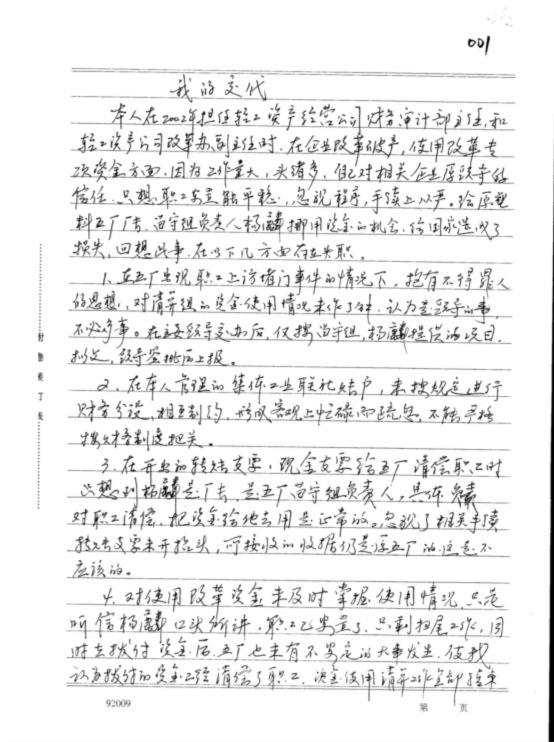 001
我的交代
本人在2002年担任轻工资产经营公司财务审计部主任,和
轻工资产公司改革办副主任时,在企业改革破产,使用改革专
项资金方面,因为工作量大,头绪多,自己对相关企业原领导的
信任,只想职工安置能平稳,忽视程序,手续上从严。给原塑
料五厂厂长、留守组负责人杨麟挪用资金的机会,给国家造成了
损失,回想此事,在以下几方面存在失职。
1、在五厂出现职工上访堵门事件的情况下,抱有不得罪人
的思想,对清算组的资金使用情况未作了解,认为是领导的事,
不必多事。在主要领导交办后,仅按留守组,杨麟提供的项目,
拟文,领导签批后上报。
2、在本人管理的集体工业联社帐户,未按规定进行
财务分设,相互制约,形成客观上忙碌而疏忽,不能严格
按财务制度把关。
3、在开出的转帐支票,现金支票给五厂清偿职工时
只想到杨麟是厂长,是五厂留守组负责人,具体负责
对职工清偿,把资金给他去用是正常的。忽视了相关手续
转帐支票未开抬头,所接收的收据仍是原五厂的这是不
应该的。
4、对使用改革资金未及时掌握使用情况,只是
听信杨麟口头所讲,职工已安置了,只剩扫尾工作,同
时在拨付资金后五厂也未有不安定的大事发生,使我
认为拨付的资金已经清偿了职工,资金使用清算工作全部结束
92009
第 页